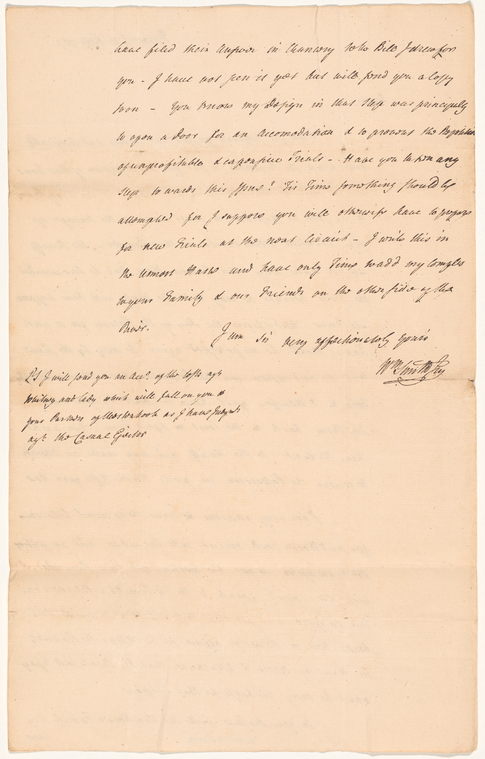 have filed their Answer in Chancery to the Bill I drew for
you - I have not seen it yet but will send you a Copy
soon - You know my Design in that Step was principally
to open a Door for an accomodation & to prevent the Repetition
of unprofitable & expensive Trials - Have you taken any
Steps towards this Issue? Tis Time something should be
attempted for I suppose you will otherwise have to prepare
for new Trials at the next Circuit - I write this in
the utmost Haste and have only Time to add my Compls
to your Family & our Friends on the other side of the
River.
I am Sir very affectionately yours
Wm Smith Jr
PS I will send you an Acct. of the Costs agt
Whitney and lady which will fall on you &
your Partners as I have Judgmt
agt. the Casual Ejector